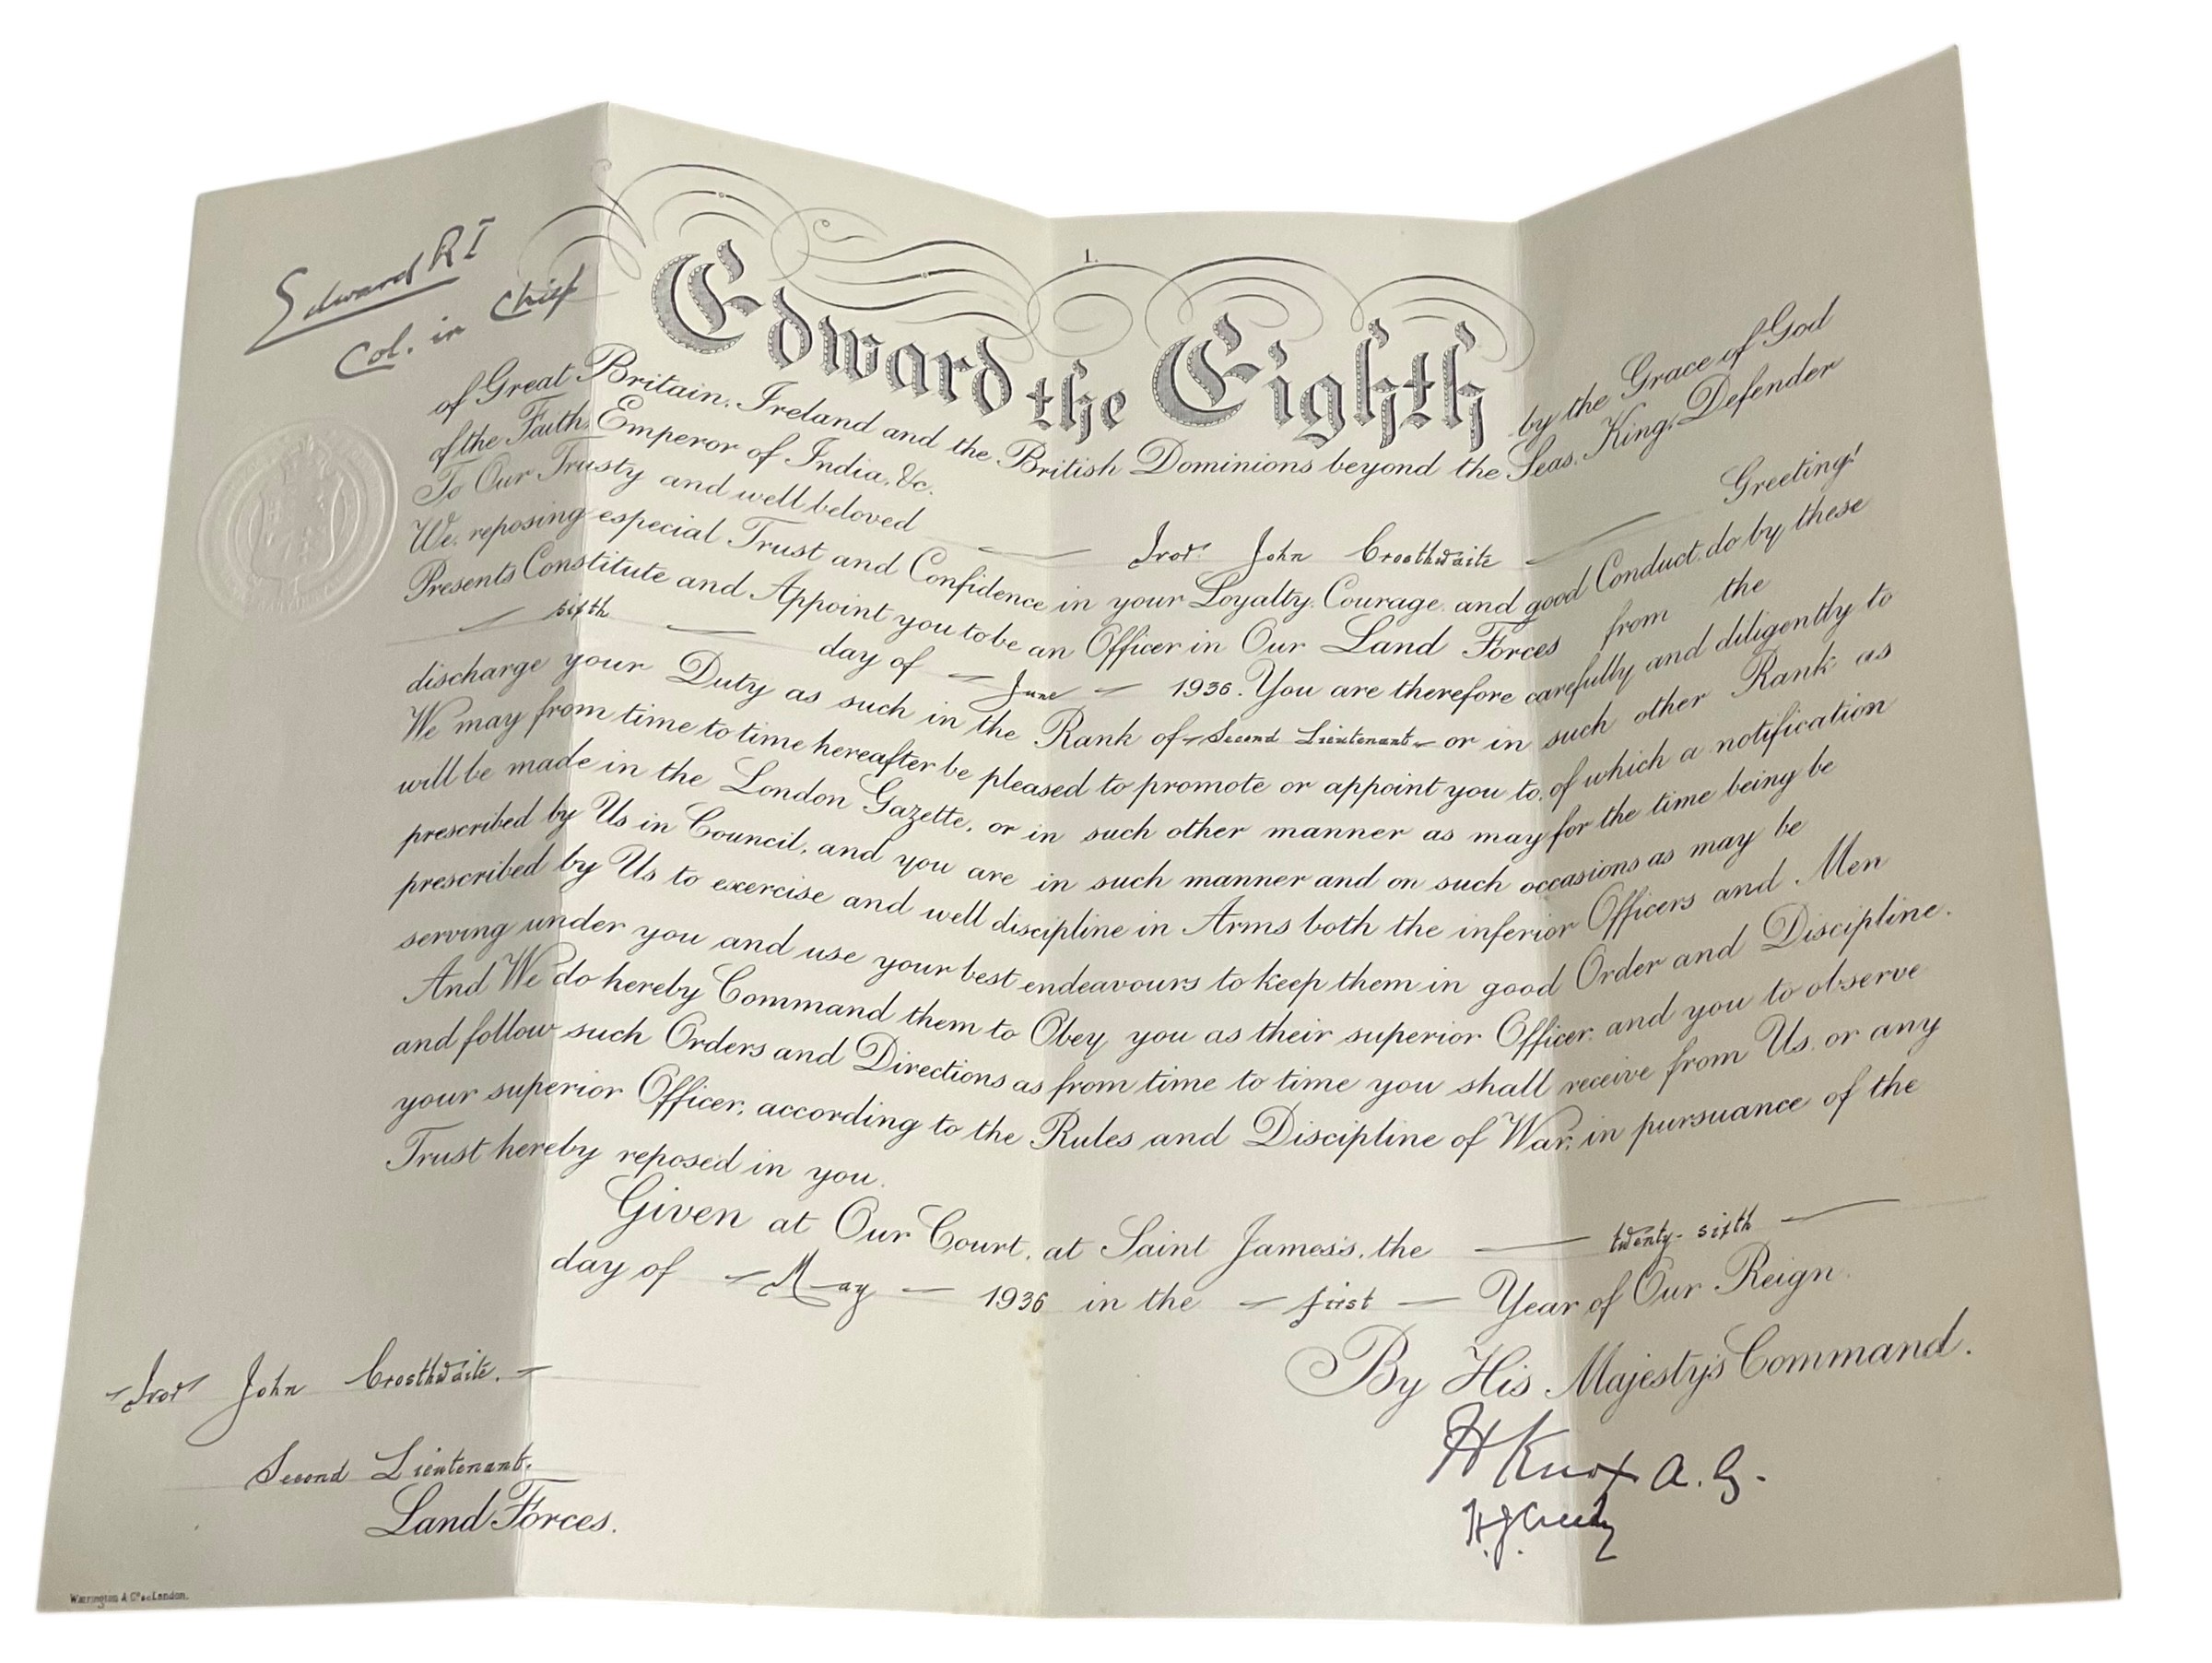 1.
Edward RI
Col. in Chief
Edward the Eighth by the Grace of God
of Great Britain, Ireland and the British Dominions beyond the Seas, King, Defender
of the Faith, Emperor of India, &c.
To Our Trusty and well beloved Ivor John Crosthwaite Greeting!
We, reposing especial Trust and Confidence in your Loyalty, Courage, and good Conduct, do by these
Presents Constitute and Appoint you to be an Officer in Our Land Forces from the
sixth day of June 1936. You are therefore carefully and diligently to
discharge your Duty as such in the Rank of Second Lieutenant or in such other Rank as
We may from time to time hereafter be pleased to promote or appoint you to, of which a notification
will be made in the London Gazette, or in such other manner as may for the time being be
prescribed by Us in Council, and you are in such manner and on such occasions as may be
prescribed by Us to exercise and well discipline in Arms both the inferior Officers and Men
serving under you and use your best endeavours to keep them in good Order and Discipline.
And We do hereby Command them to Obey you as their superior Officer, and you to observe
and follow such Orders and Directions as from time to time you shall receive from Us, or any
your superior Officer, according to the Rules and Discipline of War, in pursuance of the
Trust hereby reposed in you.
Given at Our Court, at Saint James's, the twenty-sixth
day of May 1936 in the first Year of Our Reign.
By His Majesty's Command.
Ivor John Crosthwaite.
Second Lieutenant.
Land Forces.
H Knox A.G.
H.J. Creedy
Warrington & Co. London.